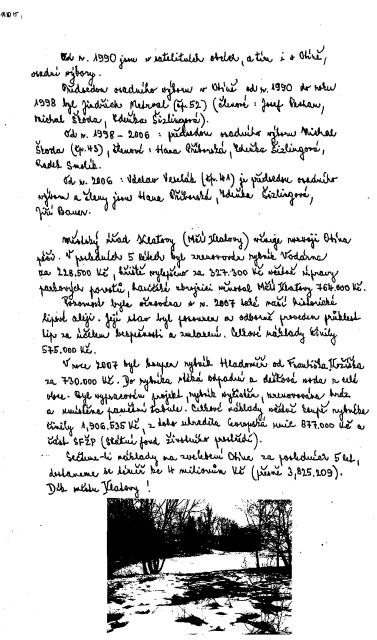 Od r. 1990 jsou v satelitních obcích, a tím i v Otíně,
osadní výbory.
Předsedou osadního výboru v Otíně od r. 1990 do roku
1998 byl Jindřich Metrval (čp. 52) (členové: Josef
Michal Škoda, Zdeňka Šizlingová).
Od r. 1998 - 2006: předsedou osadního výboru Michal
Škoda (čp. 43), členové: Hana Příborská, Zdeňka Šizlingová,
Radek Smolík.
Od r. 2006: Václav Veselák (čp. 41) je předsedou osadního
výboru a členy jsou Hana Příborská, Zdeňka Šizlingová,
Jiří Bauer.
Městský úřad Klatovy (Měú Klatovy) věnuje rozvoji Otína
péči. V posledních 5 letech byl zrenovován rybník Vodárna
za 228.500 Kč, hřiště vylepšeno za 327.300 Kč včetně úpravy
parkových porostů, hasičské zbrojnici věnoval Měú Klatovy 764.000 Kč.
Pozornost byla věnována v r. 2007 také naší historické
lipové aleji. Její stav byl posouzen a odborně proveden průklest
lip za účelem bezpečnosti a zmlazení. Celkové náklady činily
575.000 Kč.
V roce 2007 byl koupen rybník Hladoměř od Františka
za 730.000 Kč. Do rybníka stéká odpadní a dešťová voda z celé
obce. Byl vypracován projekt, rybník vyčištěn, zrenovována hráz
a umístěna pamětní tabule. Celkové náklady včetně koupě rybníka
činily 1,906.535 Kč, z toho uhradila Evropská unie 877.000 Kč a
část SFŽP (Státní fond životního prostředí).
Sečteme-li náklady na zvelebení Otína za posledních 5 let,
dostaneme se téměř ke 4 milionům Kč (přesně 3,825.209).
Dík městu Klatovy!